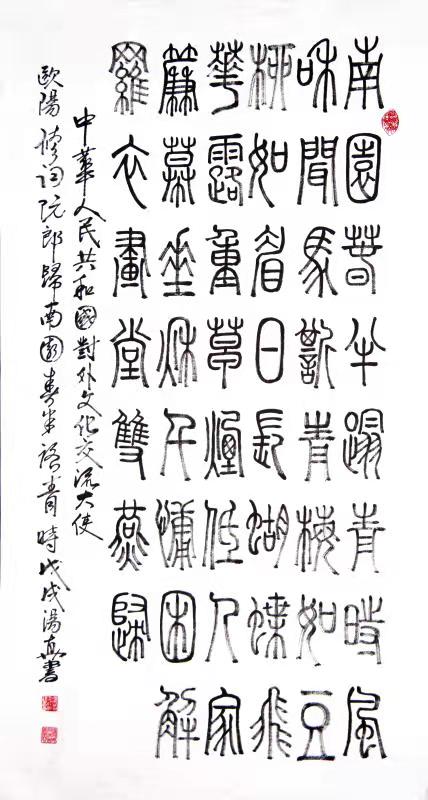 南園春半蹋青時風
和聞馬嘶青梅如豆
柳如眉日長蝴蝶飛
華露重草煙低人家
簾幕垂秌千慵困解
羅衣畫堂雙燕歸
中華人民共和國對外文化交流大使
歐陽修詞阮郎歸南園春半踏青時戊戌湯真書